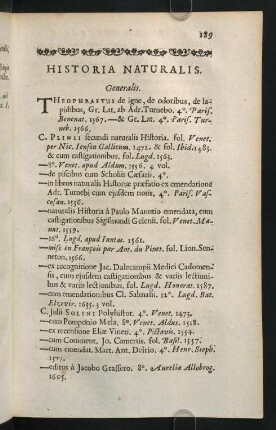 189
HISTORIA NATURALIS.
Generalis.
THEOPHRASTUS de igne, de odoribus, de la-
pidibus, Gr. Lat. ab Adr. Turnebo. 4°. Paris.
Benenat. 1567.—& Gr. Lat. 4°. Paris. Tur-
neb. 1566.
C. PLINII secundi naturalis Historia. fol. Venet.
per Nic. Iensun Gallicum. 1472. & fol. Ibid. 1483.
& cum castigationibus. fol. Lugd. 1563.
—8°. Venet. apud Aldum. 1536. 4 vol.
—de piscibus cum Scholiis Cæsarii. 4°.
—in libros naturalis Historiæ præfatio ex emendatione
Adr. Turnebi cum ejusdem notis. 4°. Paris. Vas-
cosan. 1556.
—naturalis Historia à Paulo Manutio emendata, cum
castigationibus Sigismundi Gelenii. fol. Venet. Ma-
nut. 1559.
—16°. Lugd. apud Iuntas. 1561.
—mise en François par Ant. du Pinet. fol. Lion. Sen-
neton. 1566.
—ex recognitione Jac. Dalecampii Medici Cadomen-
sis, cum ejusdem castigationibus & variis lectioni-
bus & variis lectionib. fol. Lugd. Honorat. 1587.
—cum emendationibus Cl. Salmasii. 12°. Lugd. Bat.
Elzevir. 1635. 3 vol.
C. Julii SOLINI Polyhistor. 4°. Venet. 1473.
—cum Pomponio Mela. 8°. Venet. Aldus. 1518.
—ex recensione Eliæ Vineti. 4°. Pictavis. 1554.
—cum Comment. Jo. Camertis. fol. Basil. 1557.
—cum emendat. Mart. Ant. Delrio. 4°. Henr. Steph.
—editus à Jacobo Grassero. 8°. Aureliæ Allobrog.
1605.